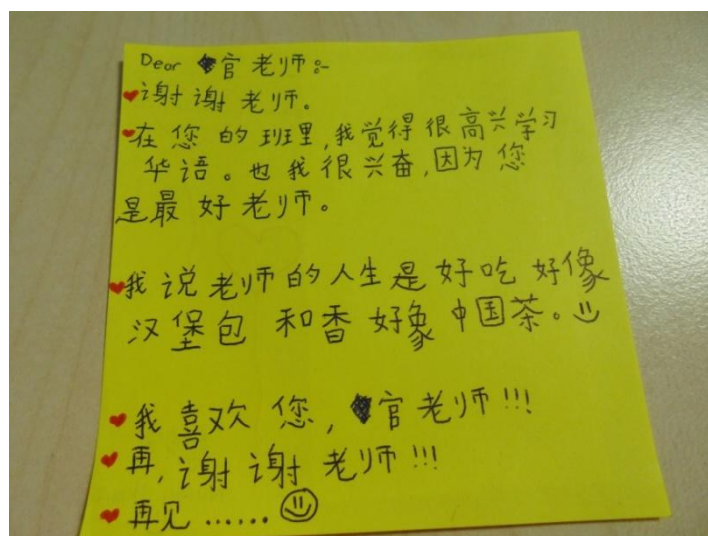 Dear 官老师:-
谢谢老师。
在您的班里,我觉得很高兴学习
华语。也我很兴奋,因为您
是最好老师。
我说老师的人生是好吃好像
汉堡包和香好象中国茶。
我喜欢您,官老师!!!
再,谢谢老师!!!
再见......